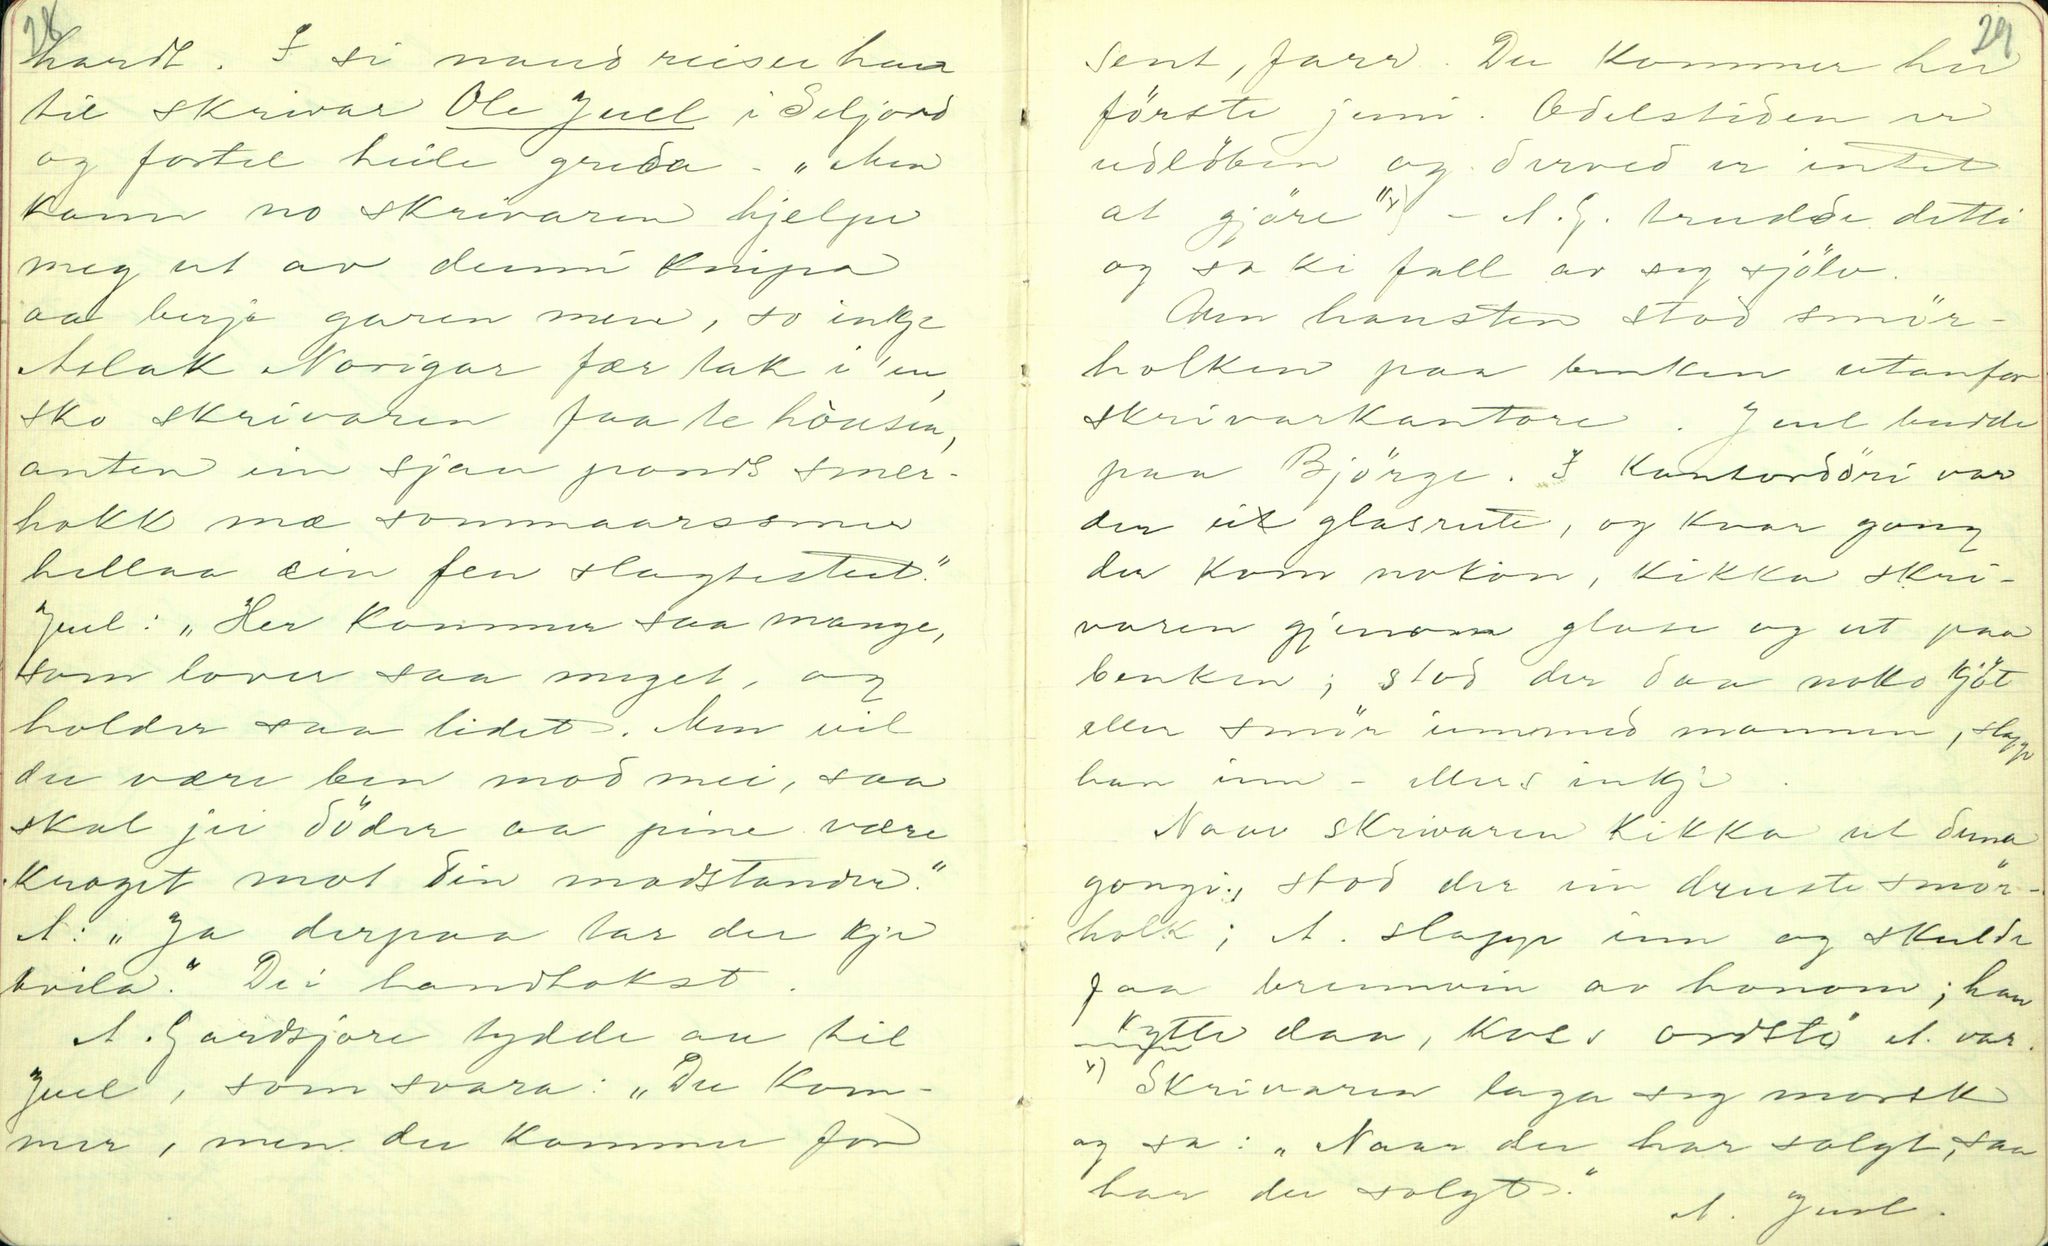 28
hardt. I si naud reiser han
til skrivar Ole Juel i Seljord
og fortel heile greida - „Men
kann no skrivaren hjelpe
meg ut av denni knipa
aa berje garen men, so inkje
Aslak Norigar fær tak i 'en,
sko skrivaren faa te hòusen,
anten ein sjau punds smer-
hokk mæ sommaarssmer
hellaa ein feit slagtestut."
Juel: „Her kommer saa mange,
som lover saa meget, og
holder saa lidet. Men vil
du være ben mod mei, saa
skal jei döder aa pine være
kroget mot din modstander."
A: „Ja derpaa tar du kje
kvila." Dei handtokst.
A. Gardsjore tydde au til
Juel, som svara: „Du kom-
mer, men du kommer for
29
sent, farr. Du kommer her
förste juni. Odelstiden er
udlöben og derved er intet
at gjöre" x) - A. G. trudde detti
og sa ki fall av seg sjölv.
Um hausten stod smör-
holken paa benken utanfor
skrivarkantore. Juel budde
paa Björge. I kantordöri var
der eit glasrute, og kvar gong
der kom nokon, kikka skri-
varen gjenom glase og ut paa
benken; stod der daa noko kjöt
eller smör innmed mannen, slapp
han inn - ellers inkje.
Naar skrivaren kikka ut denna
gongi, stod der ein druste smör-
holk; A. slapp inn og skulde
faa brennvin av honom; han
kytte daa, koss ordstö A. var.
x) Skrivaren laga seg morsk
og sa: „Naar du har solgt, saa
har du solgt."
A. Juel.